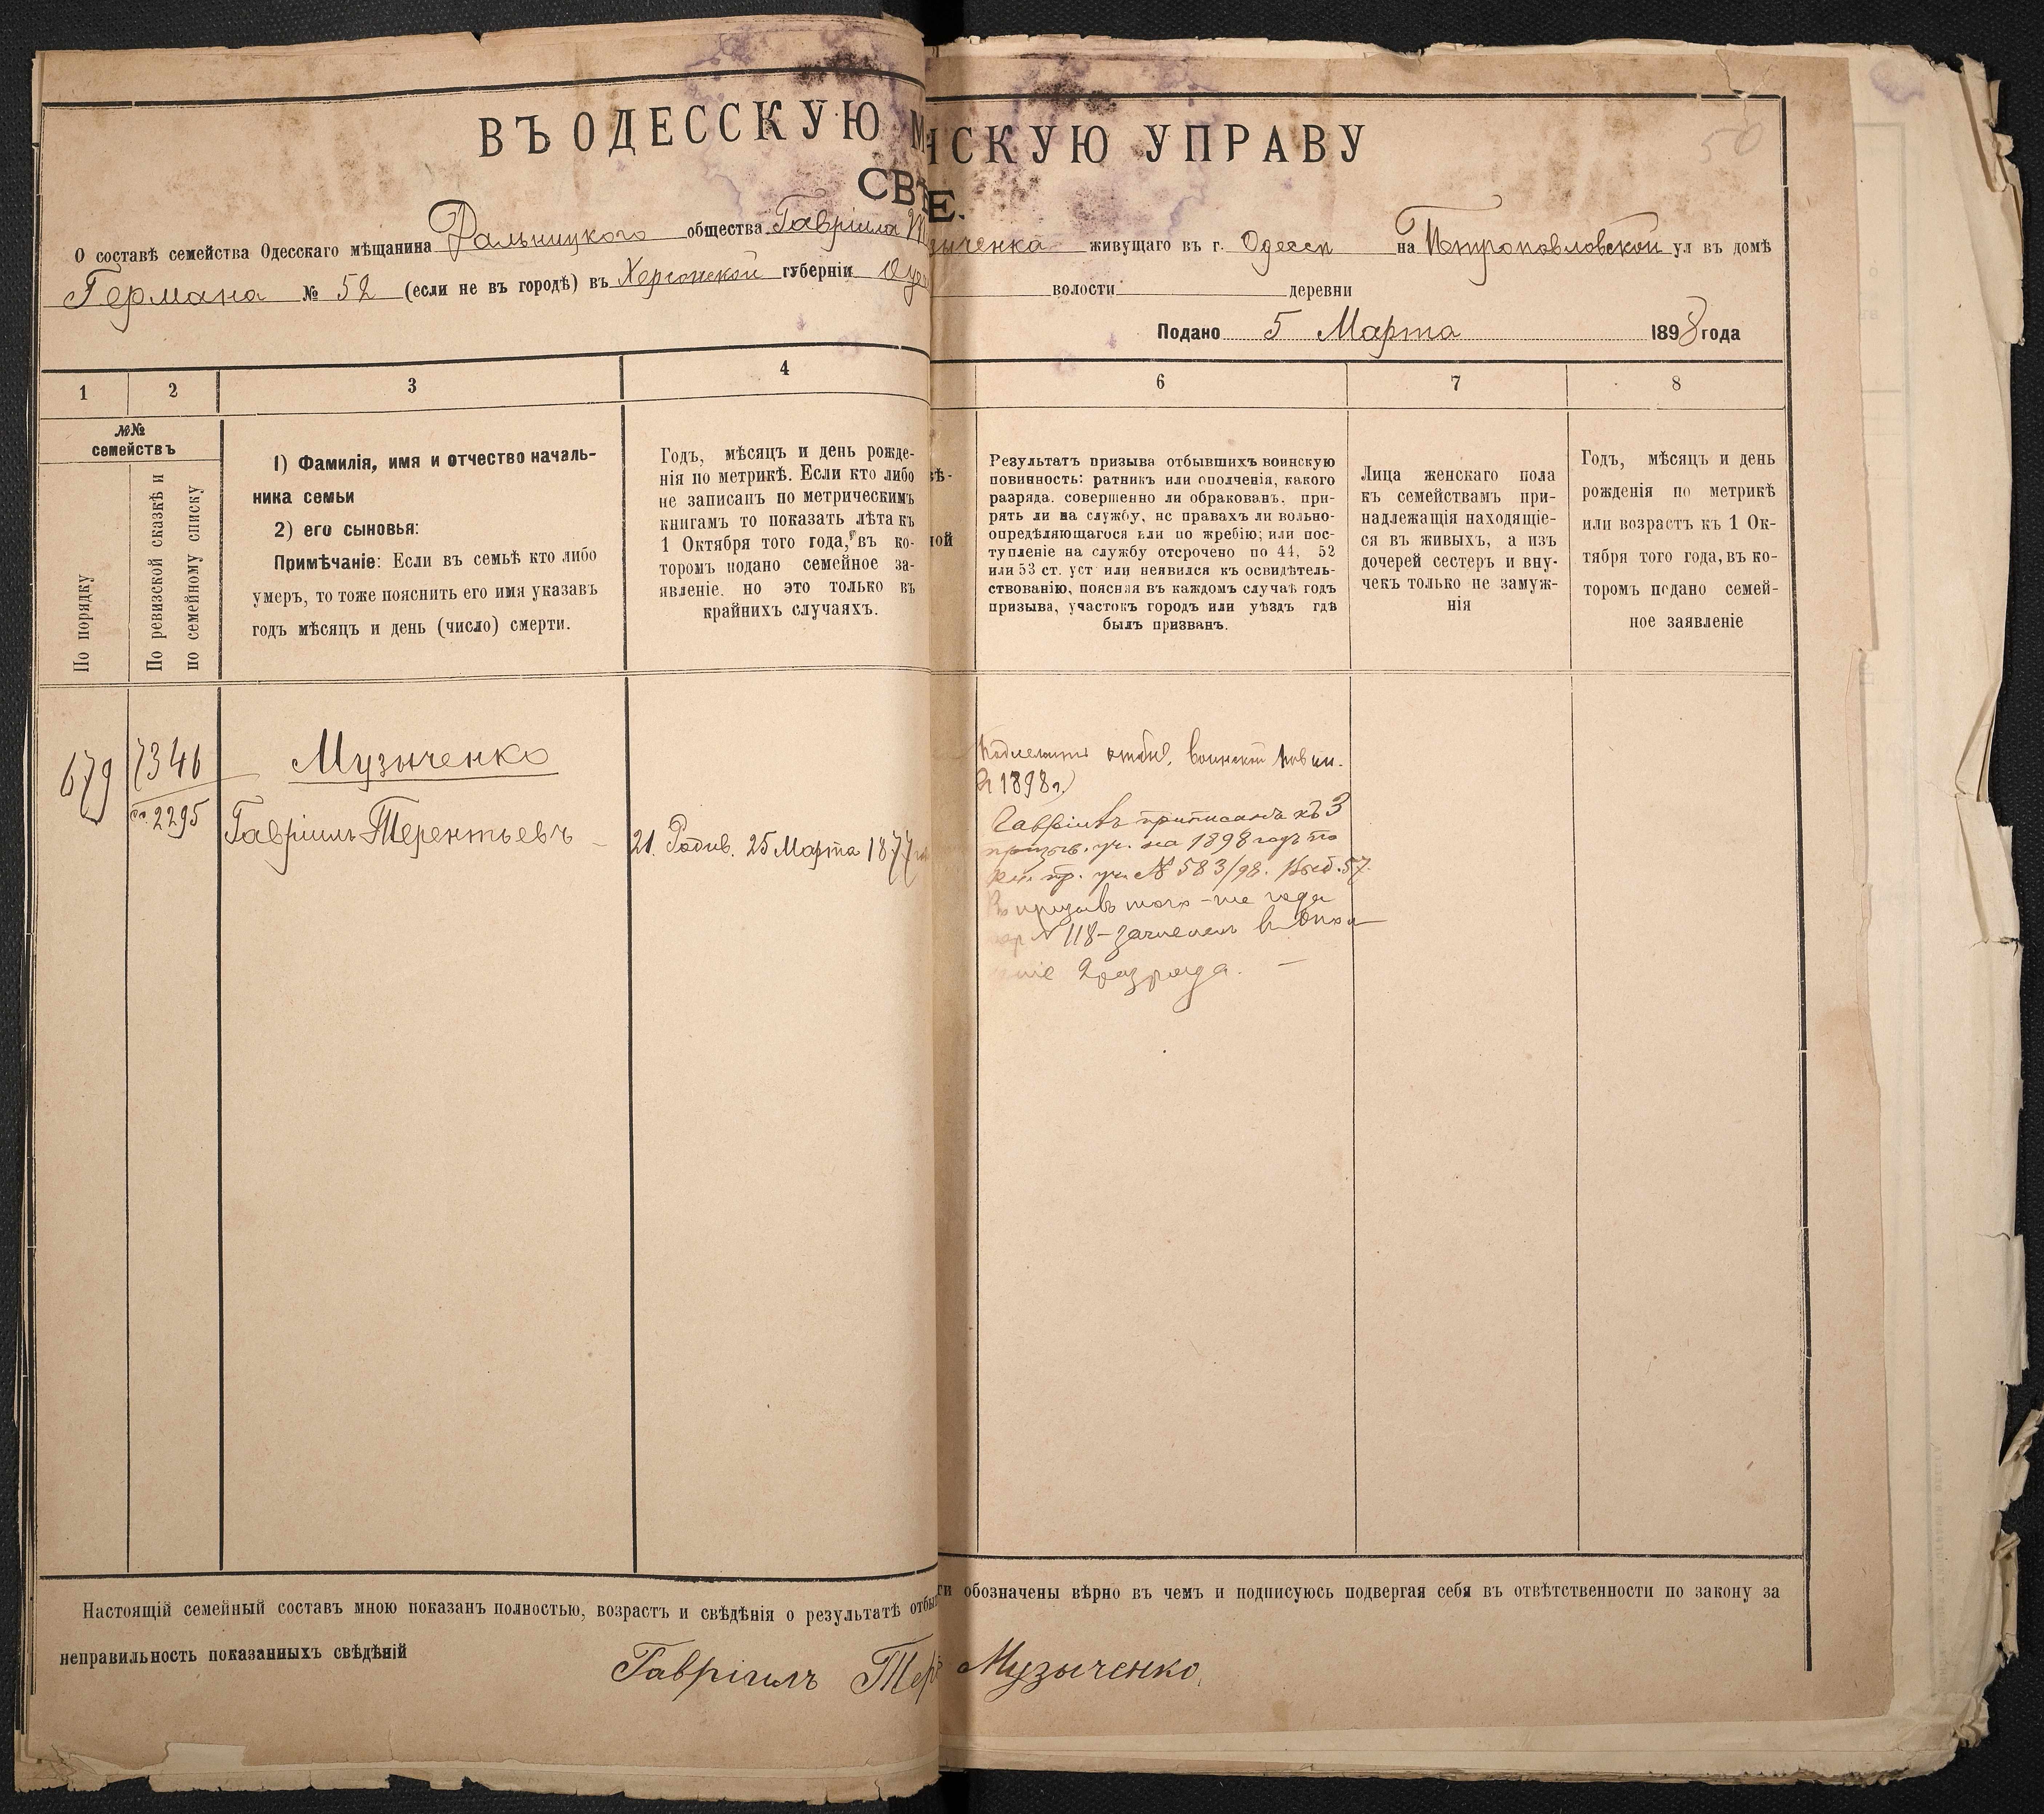 ВЪ ОДЕССКУЮ М НСКУЮ УПРАВУ
50
СВѢ Е.
О составѣ семейства Одесскаго мѣщанина Дальницкого общества Гавріила М зыченка живущаго въ г. Одессѣ на Петропавловской ул въ домѣ
Германа № 52 (если не въ городѣ) въ Херсонской губерніи Оде волости деревни
Подано 5 Марта 1898 года
1 2 3 4 6 7 8
№№ семействъ
По порядку
По ревизской сказкѣ и
по семейному списку
1) Фамилія, имя и отчество началь-
ника семьи
2) его сыновья:
Примѣчаніе: Если въ семьѣ кто либо
умеръ, то тоже пояснить его имя указавъ
годъ мѣсяцъ и день (число) смерти.
Годъ, мѣсяцъ и день рожде-
нія по метрикѣ. Если кто либо
не записанъ по метрическимъ
книгамъ то показать лѣта къ
1 Октября того года, въ ко-
торомъ подано семейное за-
явленіе. но это только въ
крайнихъ случаяхъ.
ѣ-
ной
Результатъ призыва отбывшихъ воинскую
повинность: ратникъ или ополченія, какого
разряда. совершенно ли обракованъ. при-
рять ли на службу, нс правахъ ли вольно-
опредѣляющагося или по жребію; или пос-
тупленіе на службу отсрочено по 44, 52
или 53 ст. уст или неявился къ освидѣтель-
ствованію, поясняя въ каждомъ случаѣ годъ
призыва, участокъ городъ или уѣздъ гдѣ
былъ призванъ.
Лица женскаго пола
къ семействамъ при-
надлежащія находящіе-
ся въ живыхъ, а изъ
дочерей сестеръ и вну-
чекъ только не замуж-
нія
Годъ, мѣсяцъ и день
рожденія по метрикѣ
или возрастъ къ 1 Ок-
тября того года, въ ко-
торомъ подано семей-
ное заявленіе
679 7346 Музыченко
2295 Гавріилъ Терентьевъ 21. Родив. 25 Марта 1877
Подлежитъ отбыв. воинской повин.
1898 г.
Гавріилъ приписанъ къ 3
призыв. уч. на 1898 годъ по
пр. уч. № 583/98. 57.
призывъ того-же года
№ 118 - зачисленъ въ опол
ніе 2 разряда. —
Настоящій семейный составъ мною показанъ полностью, возрастъ и свѣдѣнія о результатѣ отбы ти обозначены вѣрно въ чемъ и подписуюсь подвергая себя въ отвѣтственности по закону за
неправильность показанныхъ свѣдѣній
Гавріилъ Тере Музыченко